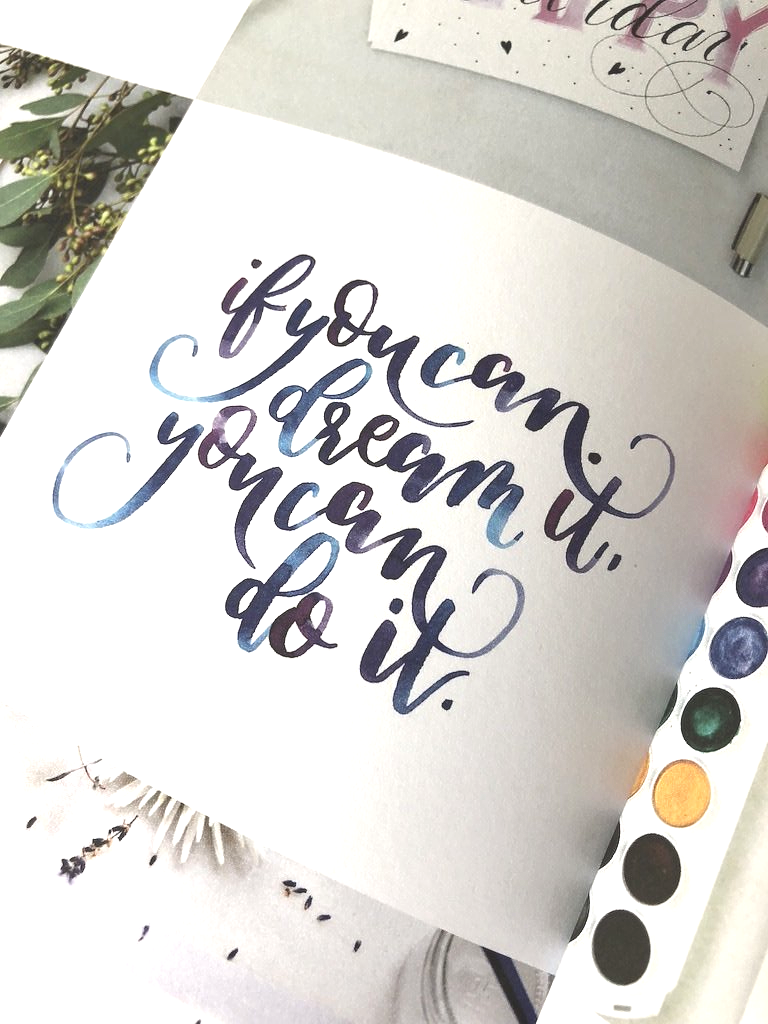 if you can
dream it.
you can
do it.